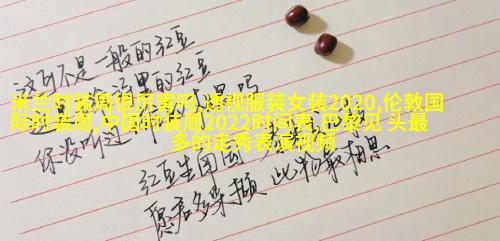 这可不是一般的红豆
里的红豆
米兰时装周很厉害吗,透视服装女装2020,伦敦国
际时装周,中国时装周2022时间表,巴黎见 头最
多的走秀表演视频
你没听过
红豆生南国
愿君多采撷 此物最相思